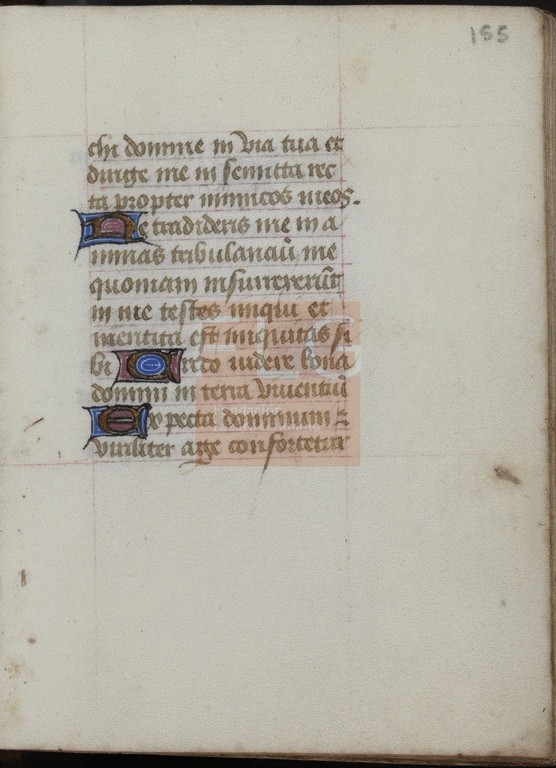 155
chi domine in via tua et
dirige me in semitta rec
ta propter inimicos meos.
Ne tradideris me in a
nimas tribulanciū me
quoniam insurrexerūt
in me testes iniqui et
mentita est iniquitas si
bi Credo videre bona
domini in terra viuentiū
Expecta dominum
viriliter age confortetur